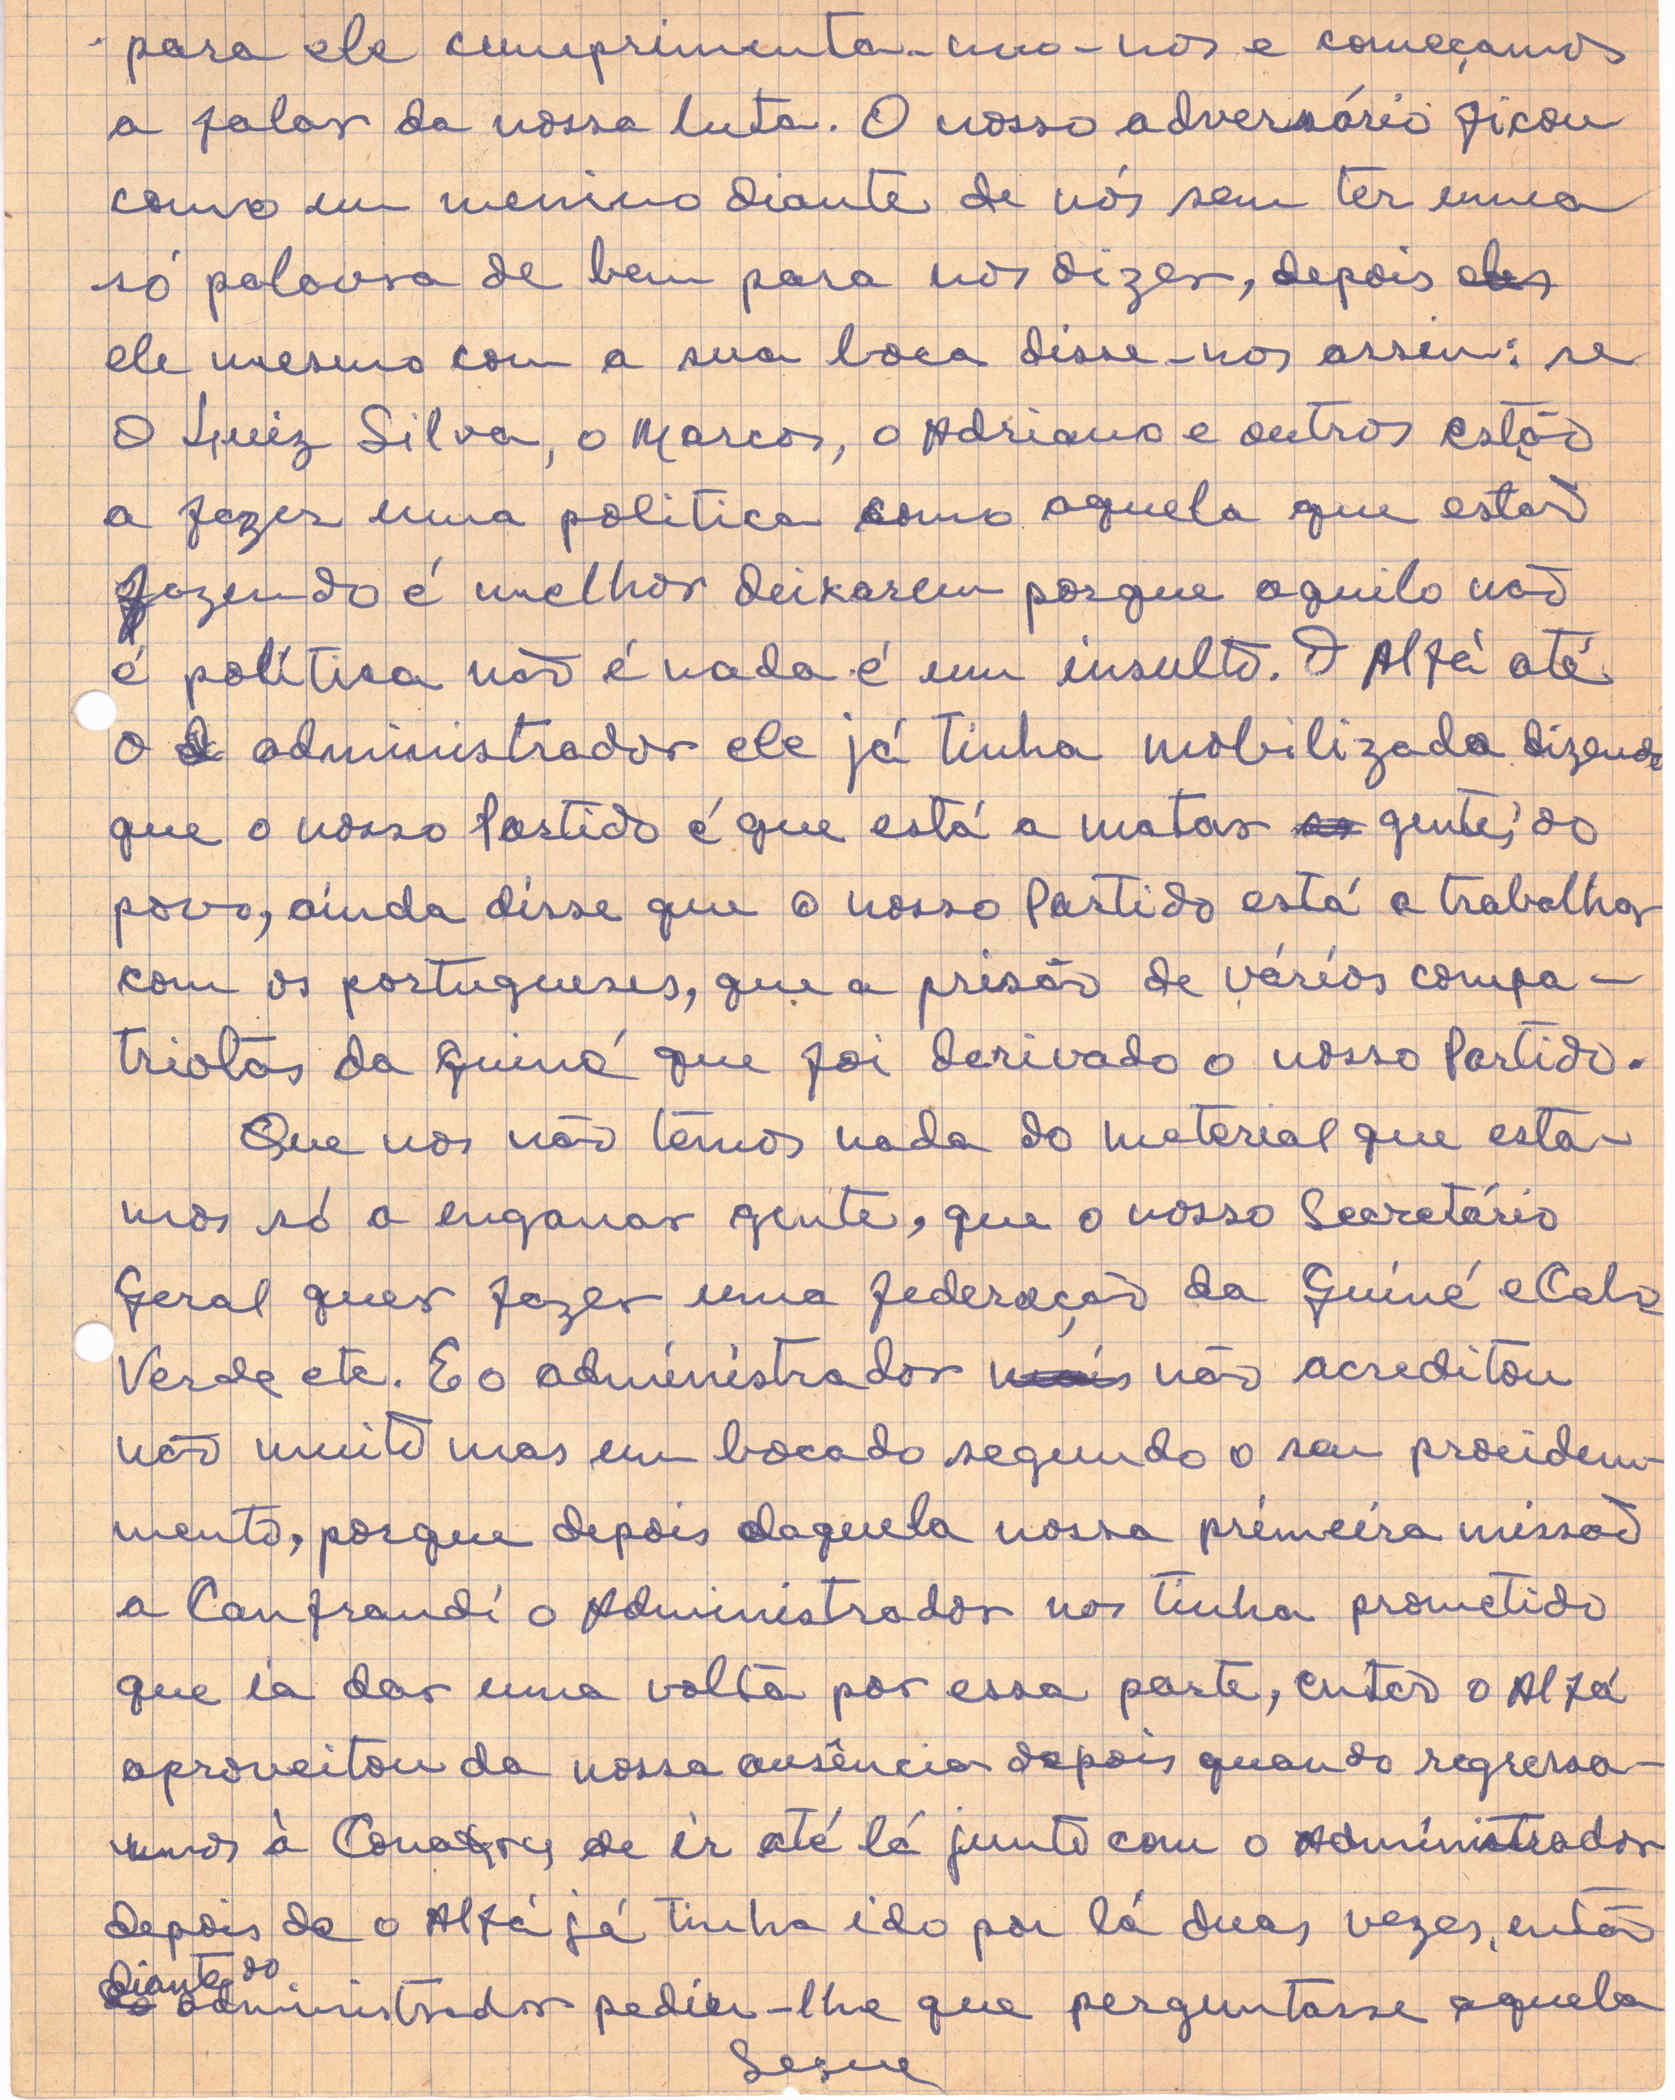 para ele cumprimenta-mo-nos e começamos
a falar da nossa luta. O nosso adversário ficou
como um menino diante de nós sem ter uma
só palavra de bem para nos dizer, depois eles
ele mesmo com a sua boca disse-nos assim: se
o Luiz Silva, o Marcos, o Adriano e outros estão
a fazer uma politica como aquela que estão
fazendo é melhor deixarem porque aquilo não
é política não é nada é um insulto. O Alfá até
o administrador ele já tinha mobilizado dizendo
que o nosso Partido é que está a matar gente, do
povo, ainda disse que o nosso Partido está a trabalhar
com os portugueses, que a prisão de vários compa-
triotas da Guiné que foi derivado o nosso Partido.
Que nos não temos nada do material que esta-
mos só a enganar gente, que o nosso Secretário
Geral quer fazer uma federação da Guiné e Cabo
Verde etc. E o administrador mais não acreditou
não muito mas um bocado segundo o seu procidem-
mento, porque depois daquela nossa primeira missão
a Canfrandi o Administrador nos tinha prometido
que ia dar uma volta por essa parte, então o Alfá
aproveitou da nossa ausência depois quando regressa-
mos à Conakry de ir até lá junto com o Administrador
depois de o Alfá já tinha ido por lá duas vezes, então
diante do
administrador pediu-lhe que perguntasse aquela
Segue